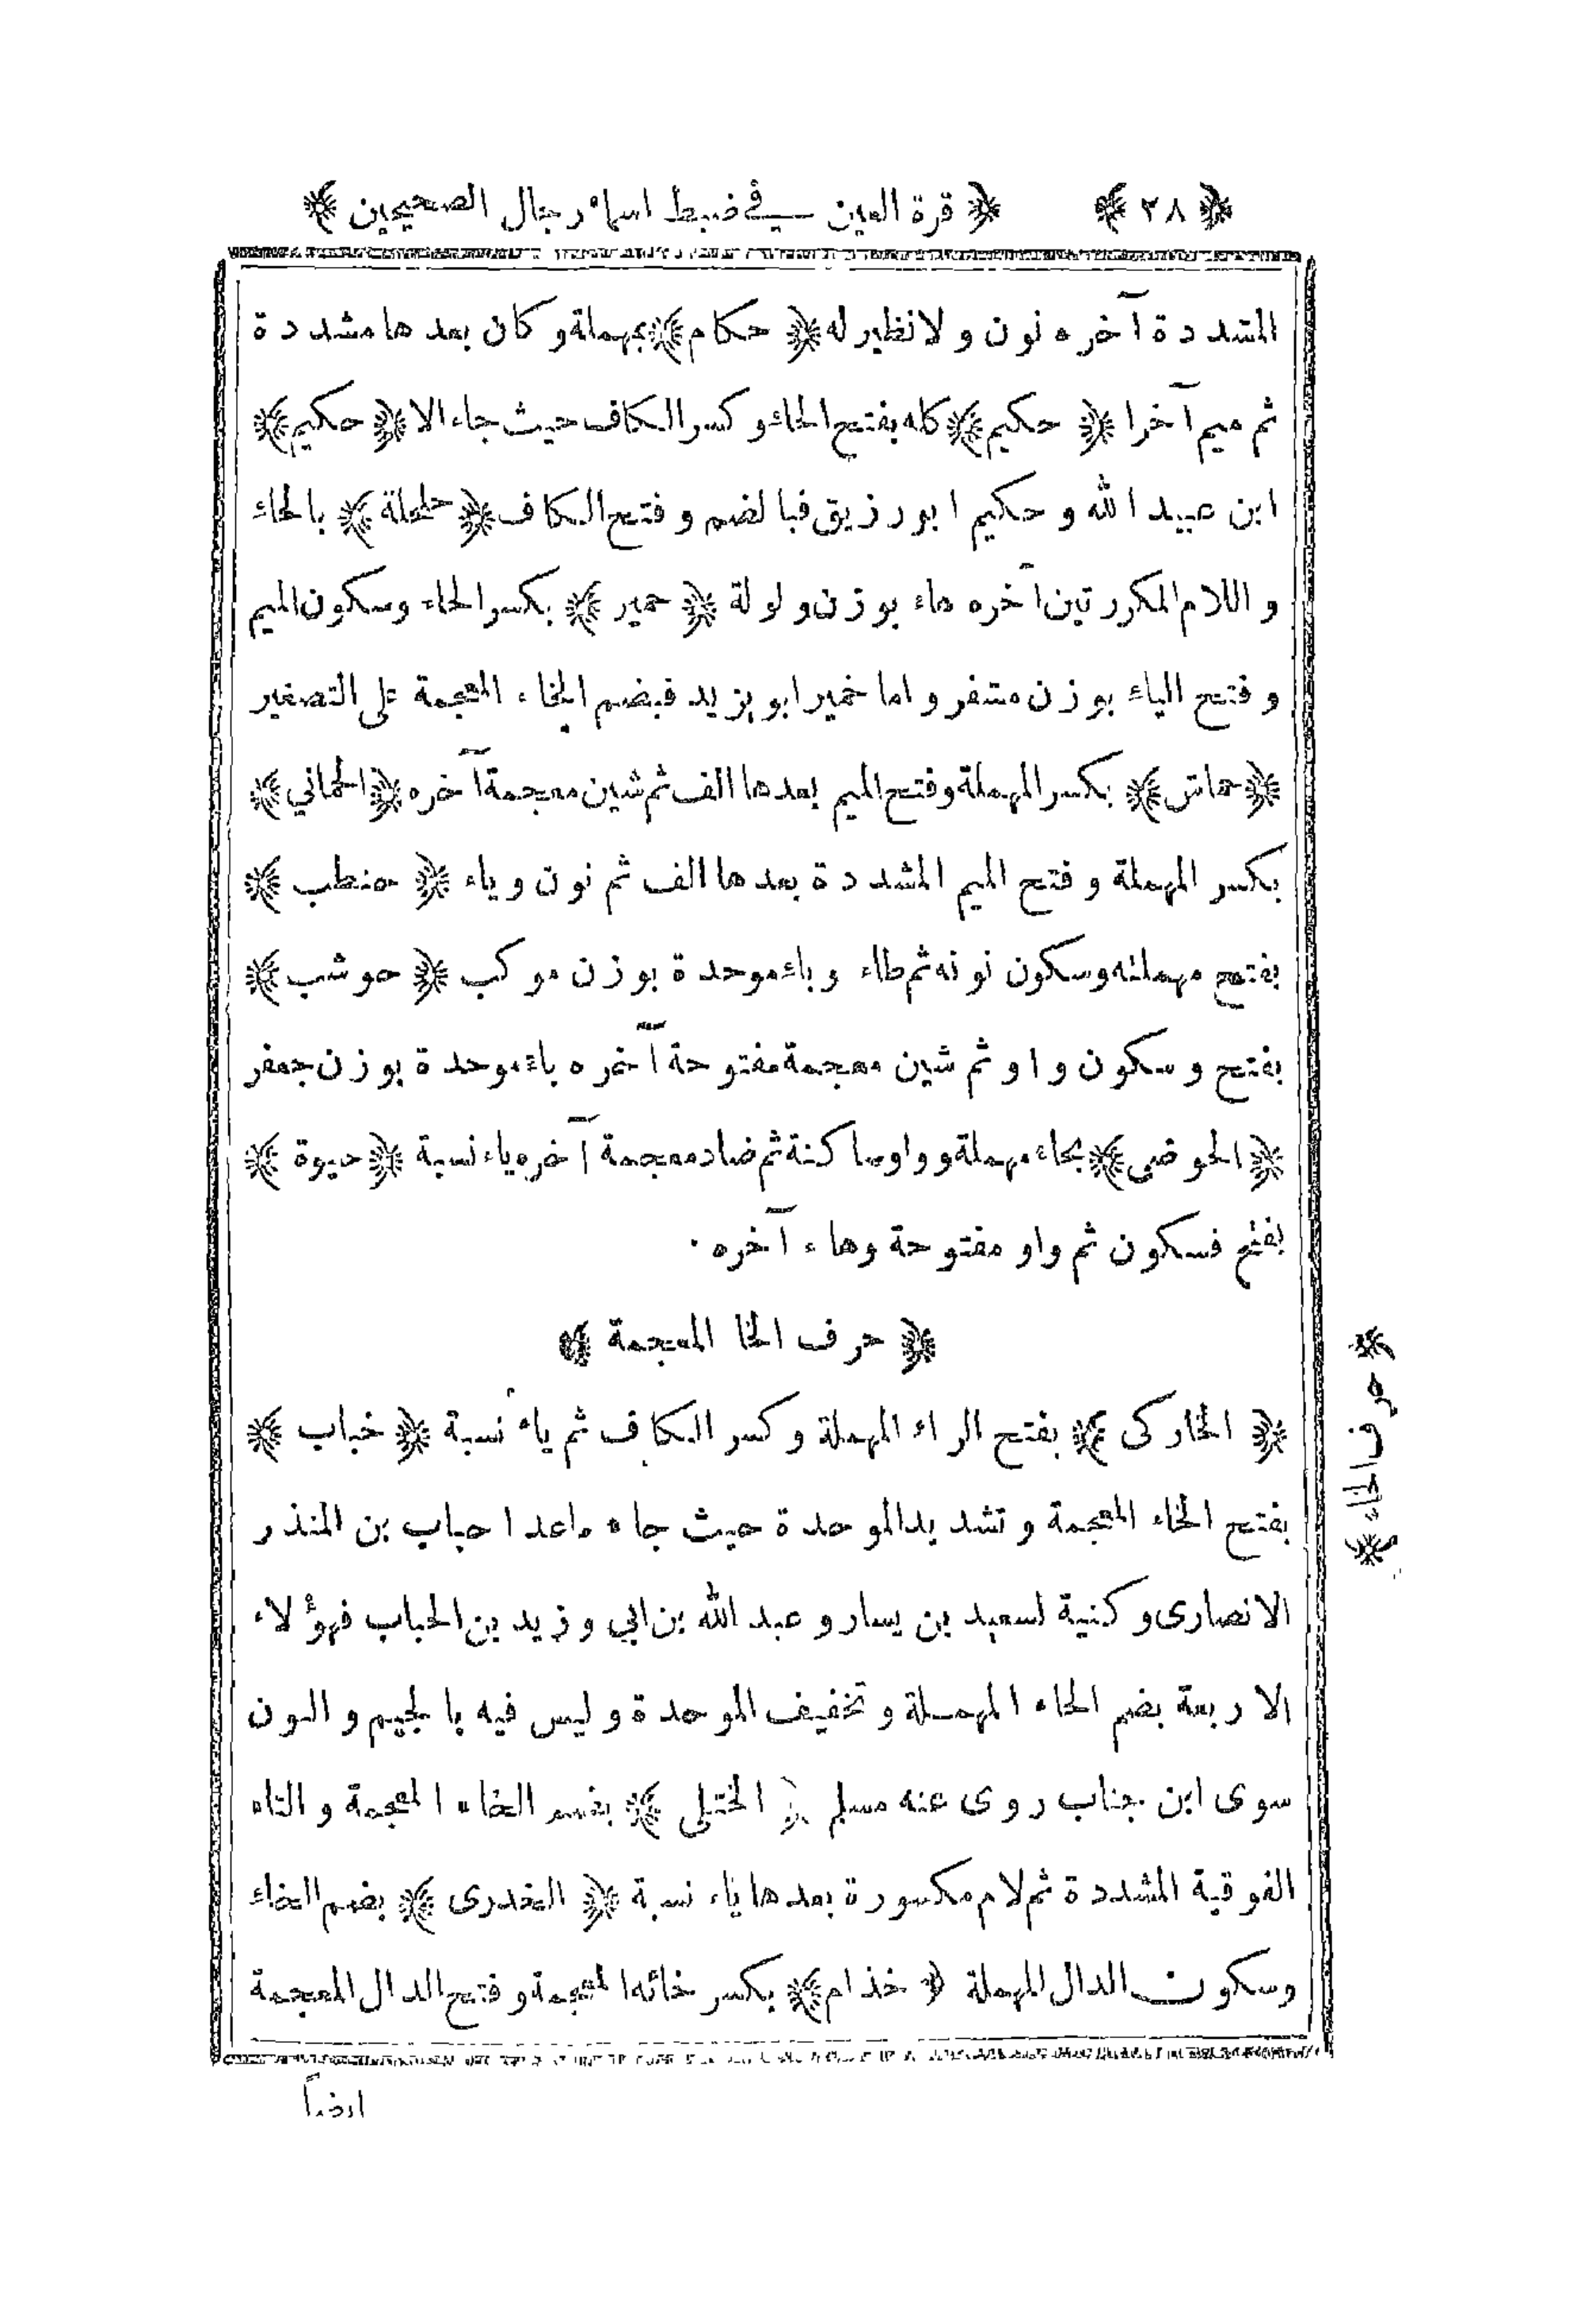 ﴿ ٢٨ ﴾ ﴿ قرة العين في ضبط اسماء رجال الصحيحين ﴾
المشددة آخره نون ولا نظير له ﴿ حكام ﴾ بمهملة وكان بعدها مشددة
ثم ميم آخرا ﴿ حكيم ﴾ كله بفتح الحاء وكسر الكاف حيث جاء الا ﴿ حكيم ﴾
ابن عبيد الله وحكيم ابو رزيق فبالضم وفتح الكاف ﴿ حلحلة ﴾ بالحاء
و اللام المكررتين آخره هاء بوزن ولولة ﴿ حمير ﴾ بكسر الحاء وسكون الميم
وفتح الياء بوزن مشفر واما خمير ابو يزيد فبضم الخاء المعجمة على التصغير
﴿ حماش ﴾ بكسر المهملة وفتح الميم بعدها الف ثم شين معجمة آخره ﴿ الحماني ﴾
بكسر المهملة وفتح الميم المشددة بعدها الف ثم نون وياء ﴿ حنطب ﴾
بفتح مهملته وسكون نونه ثم طاء وباء موحدة بوزن موكب ﴿ حوشب ﴾
بفتح وسكون واو ثم شين معجمة مفتوحة آخره باء موحدة بوزن جعفر
﴿ الحوضى ﴾ بحاء مهملة وواو ساكنة ثم ضاد معجمة آخره ياء نسبة ﴿ حيوة ﴾
بفتح فسكون ثم واو مفتوحة وهاء آخره ٠
﴿ حرف الخا المعجمة ﴾
﴿ الخاركى ﴾ بفتح الراء المهملة وكسر الكاف ثم ياء نسبة ﴿ خباب ﴾
بفتح الخاء المعجمة وتشديد الموحدة حيث جاء ماعدا حباب بن المنذر
الانصارى وكنية لسعيد بن يسار وعبد الله بن ابي وزيد بن الحباب فهؤلاء
الاربعة بضم الحاء المهملة وتخفيف الموحدة وليس فيه بالجيم و النون
سوى ابن جناب روى عنه مسلم ﴿ الختلى ﴾ بضم الخاء المعجمة والتاء
الفوقية المشددة ثم لام مكسورة بعدها ياء نسبة ﴿ الخدرى ﴾ بضم الخاء
وسكون الدال المهملة ﴿ خذام ﴾ بكسر خائه المعجمة وفتح الدال المعجمة
ايضاً
﴿ حرف الخاء ﴾